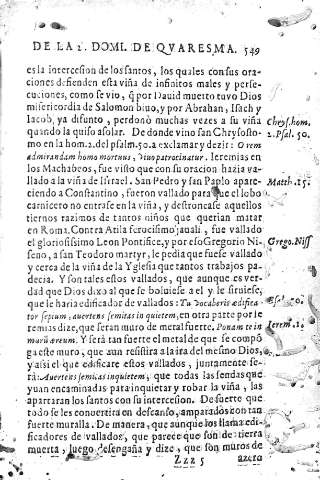 DE LA 2. DOMI. DE QVARESMA. 549
es la intercesion de los santos, los quales con sus ora-
ciones defienden esta viña de infinitos males y perse-
cuciones, como se vio, q̃ por Dauid muerto tuvo Dios
misericordia de Salomon biuo, y por Abrahan, Isach y
Iacob, ya difunto, perdonò muchas vezes a su viña
quando la quiso asolar. De donde vino san Chrysosto-
mo en la hom. 2. del psalm. 50. a exclamar y dezir: O rem
admirandam homo mortuus, viuo patrocinatur. Ieremias en
los Machabeos, fue visto que con su oracion hazia va-
llado a la viña de Israel. San Pedro y san Pablo apare-
ciendo a Constantino, fueron vallado para que el lobo
carnicero no entrase en la viña, y destroncase aquellos
tiernos razimos de tantos niños que querian matar
en Roma. Contra Atila ferocissimo jauali, fue vallado
el gloriosissimo Leon Pontifice, y por eso Gregorio Ni-
seno, a san Teodoro martyr, le pedia que fuese vallado
y cerca de la viña de la Yglesia que tantos trabajos pa-
decia. Y son tales estos vallados, que aunque es ver-
dad que Dios dixo al que se boluiese a el y le siruiese,
que le haria edificador de vallados: Tu vocaberis ædifica-
tor sepium, auertens semitas in quietem, en otra parte por Ie-
remias dize, que seran muro de metal fuerte. Ponam te in
murū æreum. Y serà tan fuerte el metal de que se compō
ga este muro, que aun resistira a la ira del mesmo Dios,
y assi el que edificare estos vallados, juntamente se-
rà: Auertens semitas in quietem, que todas las sendas que
van encaminadas para inquietar y robar la viña, las
apartaran los santos con su intercesion. De suerte que
todo se les conuertira en descanso, amparados con tan
fuerte muralla. De manera, que aunque los llama edi-
ficadores de vallados, que parece que son de tierra
muerta, luego desengaña y dize, que son muros de
Zzz 5 azero
Chrys. hom.
2. Psal. 50.
Matth. 15.
Grego. Niss
Ierem. 1.